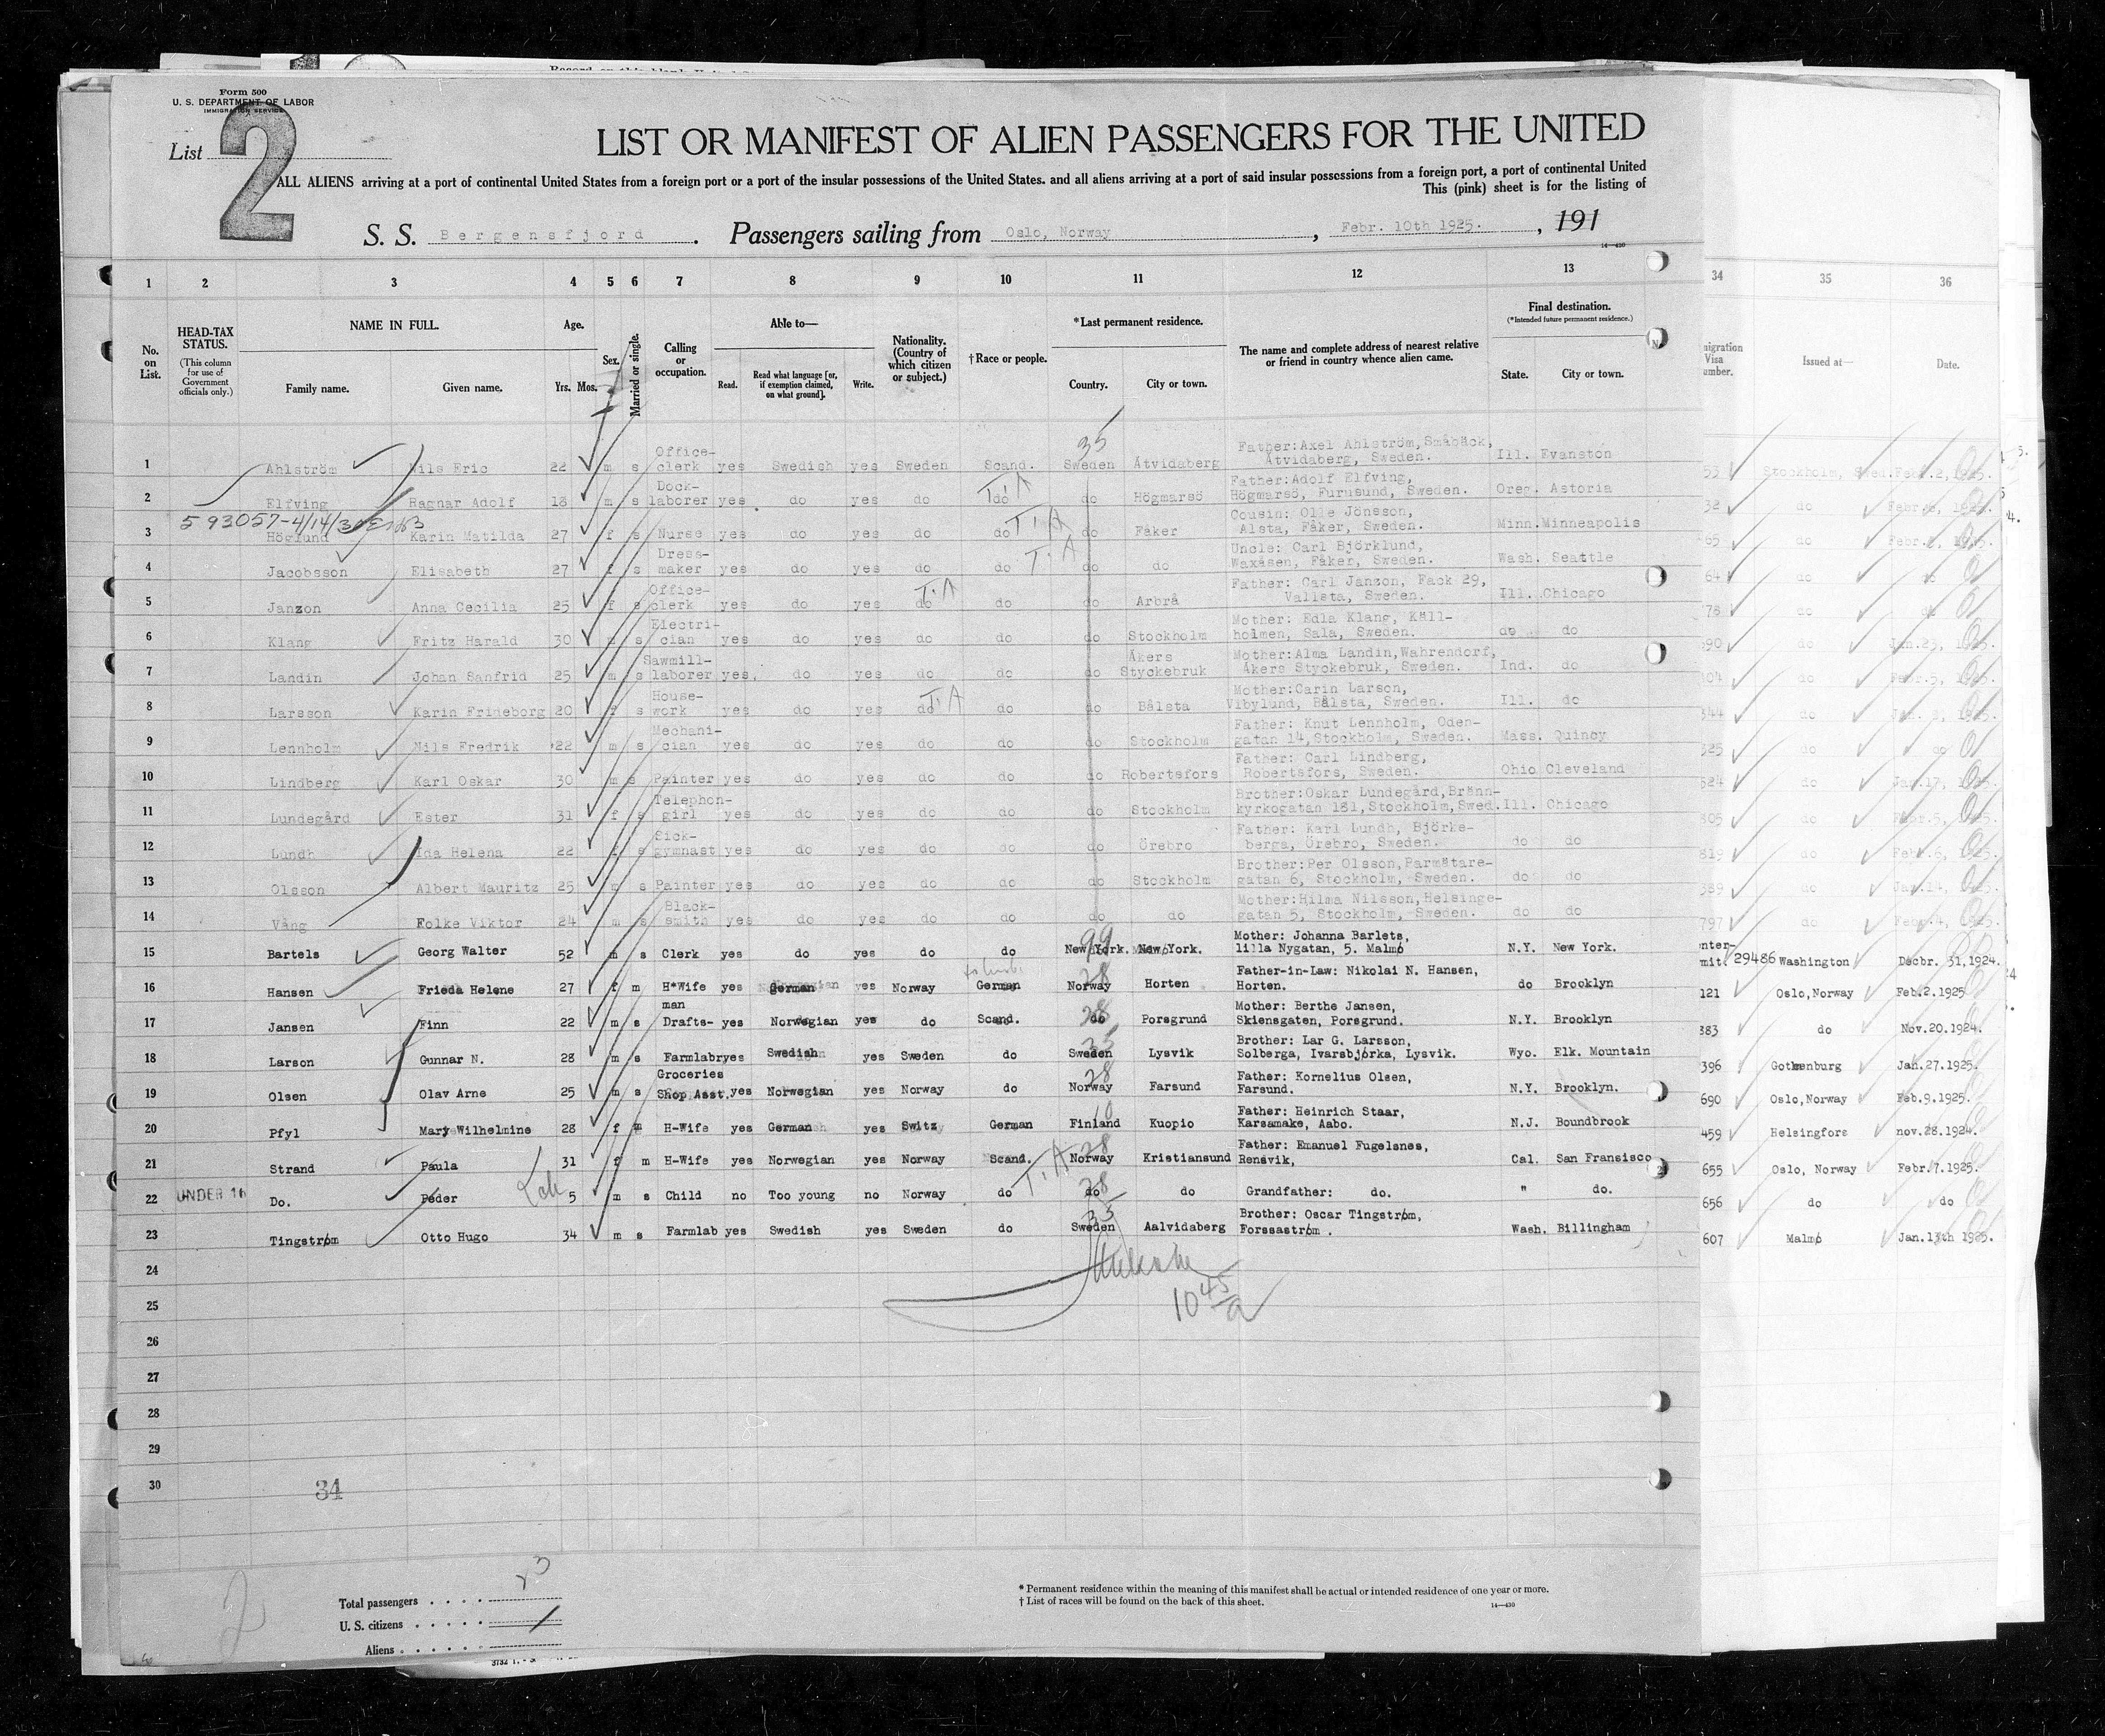 Form 500
U. S. DEPARTMENT OF LABOR
IMMIGRATION SERVICE
List 2
LIST OR MANIFEST OF ALIEN PASSENGERS FOR THE UNITED
ALL ALIENS arriving at a port of continental United States from a foreign port or a port of the insular possessions of the United States. and all aliens arriving at a port of said insular possessions from a foreign port, a port of continental United
This (pink) sheet is for the listing of
S. S. Bergensfjord . Passengers sailing from Oslo, Norway , Febr. 10th 1925. , 191
14—430
1 2 3 4 5 6 7 8 9 10 11 12 13 34 35 36
No. on List.
HEAD-TAX STATUS.
(This column for use of Government officials only.)
NAME IN FULL.
Family name. Given name.
Age.
Yrs. Mos.
Sex.
Married or single.
Calling or occupation.
Able to—
Read. Read what language [or, if exemption claimed, on what ground]. Write.
Nationality. (Country of which citizen or subject.)
†Race or people.
*Last permanent residence.
Country. City or town.
The name and complete address of nearest relative or friend in country whence alien came.
Final destination.
(*Intended future permanent residence.)
State. City or town.
migration Visa umber.
Issued at—
Date.
35
1 Ahlström Nils Eric 22 m s Office-clerk yes Swedish yes Sweden Scand. Sweden Åtvidaberg Father:Axel Ahlström,Småbäck, Åtvidaberg, Sweden. Ill. Evanston 53 Stockholm, Swed. Febr.2, 1925.
2 Elfving Ragnar Adolf 18 m s Dock-laborer yes do yes do do T.A do Högmarsö Father:Adolf Elfving, Högmarsö, Furusund, Sweden. Oreg. Astoria 32 do
5 93057-4/14/3
3 Höglund Karin Matilda 27 f s Nurse yes do yes do do T.A do Fåker Cousin: Olle Jönsson, Alsta, Fåker, Sweden. Minn. Minneapolis 65 do
4 Jacobsson Elisabeth 27 f s Dress-maker yes do yes do do T.A do do Uncle: Carl Björklund, Waxåsen, Fåker, Sweden. Wash. Seattle 64 do do
5 Janzon Anna Cecilia 25 f s Office-clerk yes do yes do T.A do do Arbrå Father: Carl Janzon, Fack 29, Vallsta, Sweden. Ill. Chicago 78 do do
6 Klang Fritz Harald 30 m s Electri-cian yes do yes do do do Stockholm Mother: Edla Klang, Käll-holmen, Sala, Sweden. do do 690 do Jan.23, 1925.
7 Landin Johan Sanfrid 25 m s Sawmill-laborer yes, do yes do do do Åkers Styckebruk Mother:Alma Landin,Wahrendorf, Åkers Styckebruk, Sweden. Ind. do 104 do Febr.5, 1925.
8 Larsson Karin Frideborg 20 f s House-work yes do yes do T.A do do Bålsta Mother:Carin Larson, Vibylund, Bålsta, Sweden. Ill. do 344 do
9 Lennholm Nils Fredrik 22 m s Mechani-cian yes do yes do do do Stockholm Father: Knut Lennholm, Oden-gatan 14,Stockholm, Sweden. Mass. Quincy 325 do do
10 Lindberg Karl Oskar 30 m s Painter yes do yes do do do Robertsfors Father: Carl Lindberg, Robertsfors, Sweden. Ohio Cleveland 624 do Jan.17, 1925.
11 Lundegård Ester 31 f s Telephon-girl yes do yes do do do Stockholm Brother:Oskar Lundegård,Bränn-kyrkogatan 181,Stockholm,Swed. Ill. Chicago 805 do Febr.5, 1925.
12 Lundh Ida Helena 22 f s Sick-gymnast yes do yes do do do Örebro Father: Karl Lundh, Björke-berga, Örebro, Sweden. do do 819 do Febr.6, 1925.
13 Olsson Albert Mauritz 25 m s Painter yes do yes do do do Stockholm Brother:Per Olsson,Parmätare-gatan 6, Stockholm, Sweden. do do 389 do Jan.14, 1925.
14 Vång Folke Viktor 24 m s Black-smith yes do yes do do do do Mother:Hilma Nilsson,Helsinge-gatan 5, Stockholm, Sweden. do do 797 do Febr.4, 1925.
15 Bartels Georg Walter 52 m s Clerk yes do yes do do 99 New York. New York. Mother: Johanna Barlets, lilla Nygatan, 5. Malmø N.Y. New York. 29486 Washington Decbr. 31,1924.
16 Hansen Frieda Helene 27 f m H*Wife yes German yes Norway German 28 Norway Horten Father-in-Law: Nikolai N. Hansen, Horten. do Brooklyn 121 Oslo,Norway Feb.2.1925
17 Jansen Finn 22 m s Drafts-man yes Norwegian yes do Scand. 28 do Porsgrund Mother: Berthe Jansen, Skiensgaten, Porsgrund. N.Y. Brooklyn 383 do Nov.20.1924.
18 Larson Gunnar N. 28 m s Farmlabr yes Swedish yes Sweden do 35 Sweden Lysvik Brother: Lar G. Larsson, Solberga, Ivarsbjörka, Lysvik. Wyo. Elk. Mountain 396 Gothenburg Jan.27.1925.
19 Olsen Olav Arne 25 m s Groceries Shop Asst. yes Norwegian yes Norway do 28 Norway Farsund Father: Kornelius Olsen, Farsund. N.Y. Brooklyn. 690 Oslo,Norway Feb.9.1925.
20 Pfyl Mary Wilhelmine 28 f m H-Wife yes German yes Switz German 10 Finland Kuopio Father: Heinrich Staar, Karsamake, Aabo. N.J. Boundbrook 459 Helsingfors nov.28.1924.
21 Strand Paula 31 f m H-Wife yes Norwegian yes Norway Scand. 28 Norway Kristiansund Father: Emanuel Fugelsnes, Rensvik, Cal. San Fransisco 655 Oslo, Norway Febr.7.1925.
22 UNDER 16 Do. Peder 5 m s Child no Too young no Norway do T.A 28 do do Grandfather: do. " do. 656 do do
23 Tingstrøm Otto Hugo 34 m s Farmlab yes Swedish yes Sweden do 35 Sweden Aalvidaberg Brother: Oscar Tingstrøm, Forssastrøm. Wash. Billingham 607 Malmø Jan.13th 1925.
24
10 45/a
25
26
27
28
29
30
34
2
Total passengers . . . . 23
U. S. citizens . . . . .
Aliens . . . . . .
* Permanent residence within the meaning of this manifest shall be actual or intended residence of one year or more.
† List of races will be found on the back of this sheet.
14—430